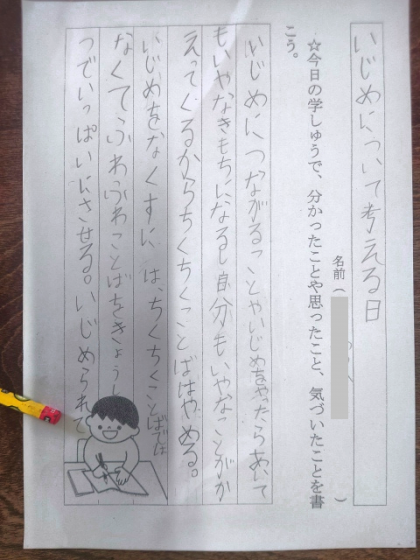 いじめについて考える日
名前（　　　）
☆今日の学しゅうで、分かったことや思ったこと、気づいたことを書
こう。
いじめにつながることやいじめをやったらあいて
もいやなきもちになるし自分もいやなことがか
えってくるからちくちくことばはやめる。
いじめをなくすには、ちくちくことばでは
なくてふわふわことばをきょうし
つでいっぱいにさせる。いじめられて